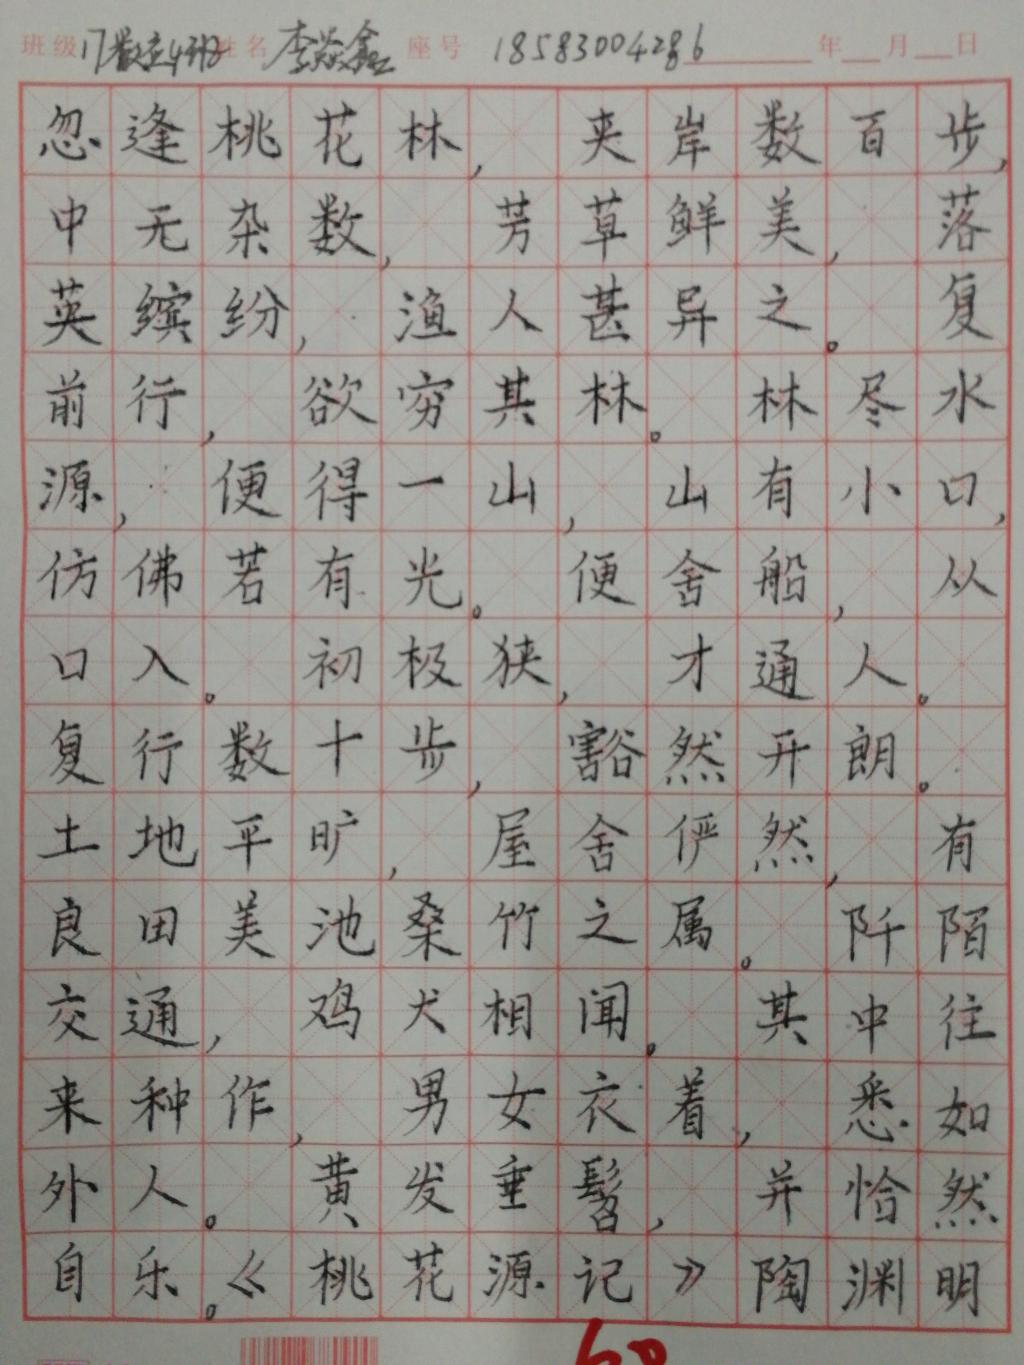 班级 17数应4班 姓名 李焱鑫 座号 18583004286 年 月 日
忽逢桃花林，夹岸数百步，
中无杂数，芳草鲜美，落
英缤纷，渔人甚异之。复
前行，欲穷其林。林尽水
源，便得一山，山有小口，
仿佛若有光。便舍船，从
口入。初极狭，才通人。
复行数十步，豁然开朗。
土地平旷，屋舍俨然，有
良田美池桑竹之属。阡陌
交通，鸡犬相闻。其中往
来种作，男女衣着，悉如
外人。黄发垂髫，并怡然
自乐。《桃花源记》陶渊明
60